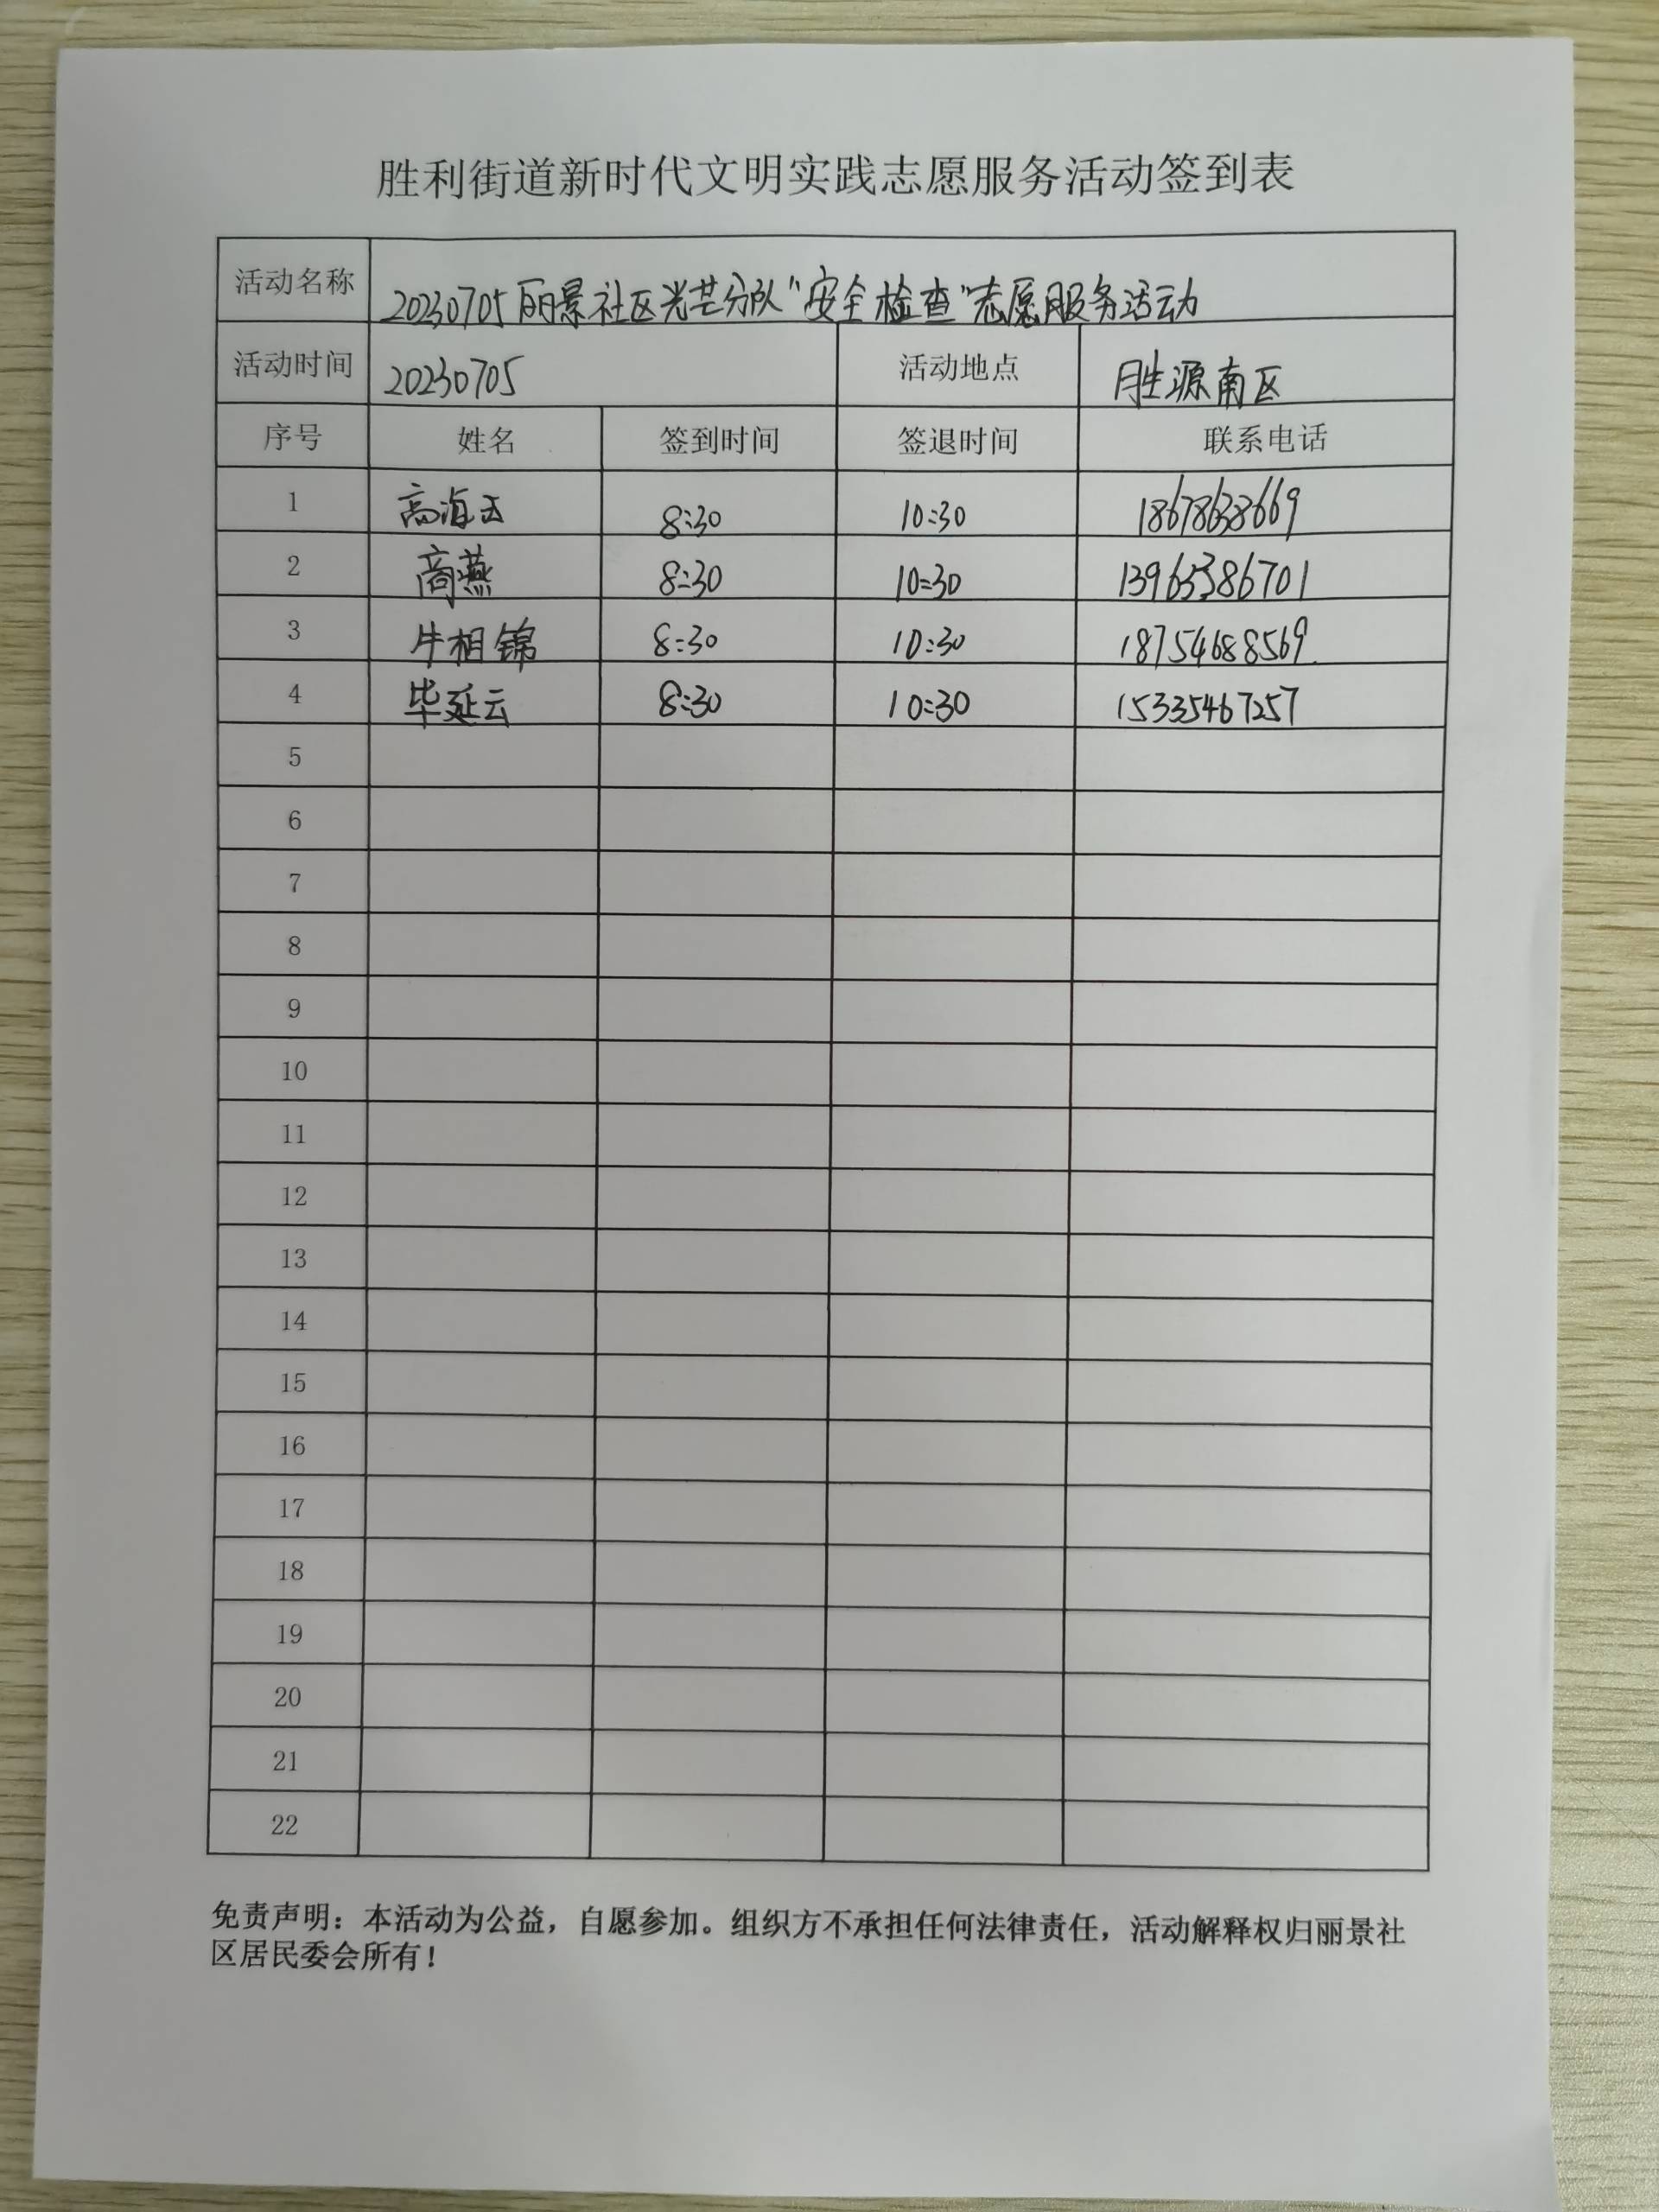 胜利街道新时代文明实践志愿服务活动签到表
活动名称 20230705丽景社区光芒分队"安全检查"志愿服务活动
活动时间 20230705 活动地点 胜源南区
序号 姓名 签到时间 签退时间 联系电话
1 高海云 8:30 10:30 18678638669
2 商燕 8:30 10:30 13963386701
3 牛相锦 8:30 10:30 18754688569
4 毕延云 8:30 10:30 15335467257
5
6
7
8
9
10
11
12
13
14
15
16
17
18
19
20
21
22
免责声明：本活动为公益，自愿参加。组织方不承担任何法律责任，活动解释权归丽景社
区居民委会所有！